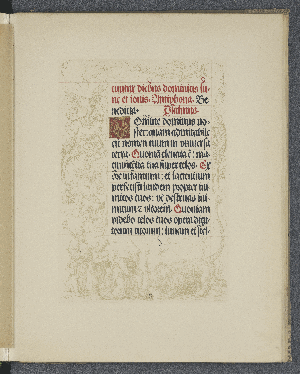 cuntur diebus dominicis lu-
ne et iouis. Antiphona. Be-
nedicta. Psalmus.
Domine dominus no-
ster: quam admirabile
est nomen tuum in vniuersa
terra. Quoniam eleuata est: ma-
gnificentia tua super celos. Ex
ore infantium et lactentium
perfecisti laudem propter ini-
micos tuos: vt destruas ini-
micum et vltorem. Quoniam
videbo celos tuos opera digi-
torum tuorum: lunam et stel-